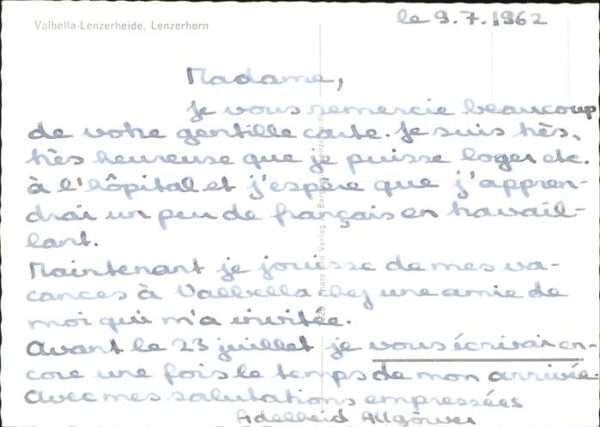 Valbella-Lenzerheide, Lenzerhorn
le 9.7.1962
Madame,
Je vous remercie beaucoup
de votre gentille carte. Je suis très,
très heureuse que je puisse loger
à l'hôpital et j'espère que j'appren-
drai un peu de français en travail-
lant.
Maintenant je jouisse de mes va-
cances à Valbella chez une amie de
moi qui m'a invitée.
Avant le 23 juillet je vous écrirai en-
core une fois le temps de mon arrivée.
Avec mes salutations empressées
Adelheid Allgöwer